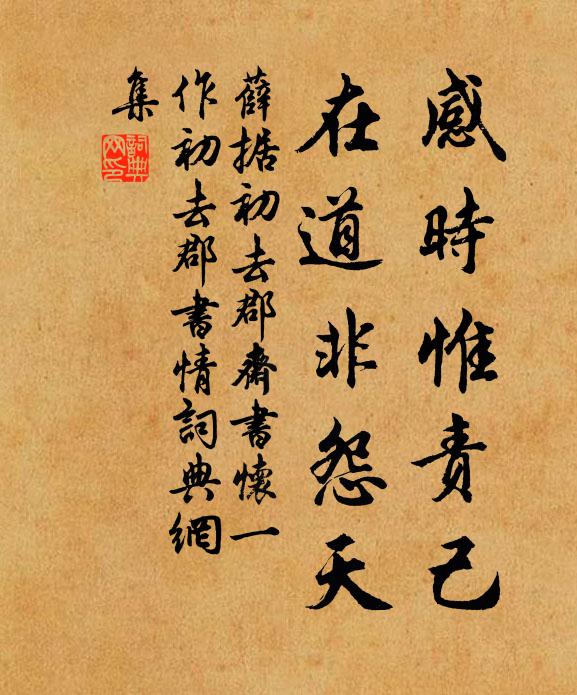 感時惟責己
在道非怨天
薛據初去郡齋書懷一
作初去郡書情詞典網
集
詞典
网印